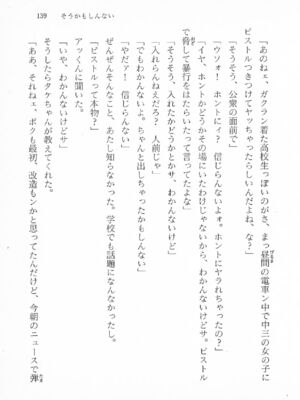 139　そうかもしんない
「あのねェ、ガクラン着た高校生っぽいのがさ、まっ昼間の電車ン中で中三の女の子に
ピストルつきつけてヤッちゃったらしいんだよね、な？」
「そうそう、公衆の面前で」
「ウッソォ！　ホントにィ？　信じらんないよォ。ホントにヤラれちゃったの？」
「イヤ、ホントかどうかその場にいたわけじゃないから、わかんないけどサ。ピストル
で脅して暴行をはたらいたって言ってたよな」
「そうそう、入れたかどうかとかサ、わかんないけど」
「入れらんねえだろ？　人前じゃ」
「でもわかんないよォ。ちゃんと出しちゃったかもしんない」
「やだァ！　信じらんない！」
ぜんぜんそんなこと、あたし知らなかった。学校でも話題になんなかったし。
「ピストルって本物？」
アッくんに聞いた。
「いや、わかんないけどサ」
そうしたらタケちゃんが教えてくれた。
「ああ、それねェ、ボクも最初、改造もンかと思ってたんだけど、今朝のニュースで弾